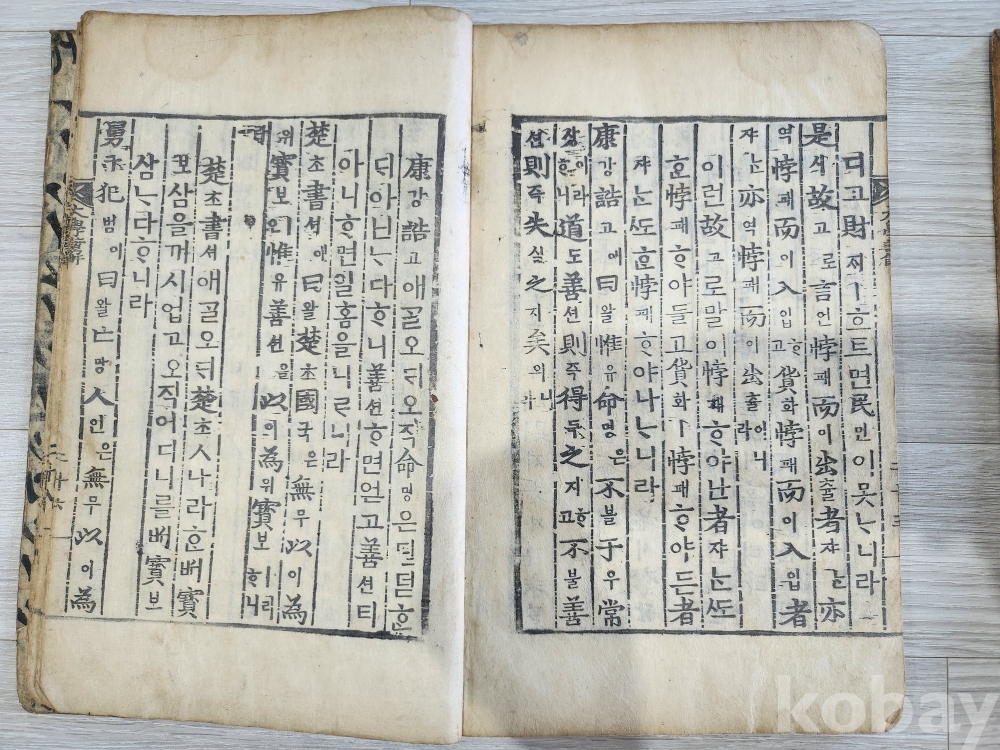 디고財ᄌᆡㅣ흐트면民민이못ᄂᆞ니라
是시故고로言언悖패而이出출者쟈ᄂᆞᆫ亦
역悖패而이入입ᄒᆞ고貨화悖패而이入입者
쟈ᄂᆞᆫ亦역悖패而이出출이니라
이런故고로말이悖패ᄒᆞ야난者쟈ᄂᆞᆫᄯᅩ
ᄒᆞᆫ悖패ᄒᆞ야들고貨화ㅣ悖패ᄒᆞ야든者
쟈ᄂᆞᆫᄯᅩᄒᆞᆫ悖패ᄒᆞ야나ᄂᆞ니라
康강誥고애曰왈惟유命명은不블于우常
샹이라ᄒᆞ니道도善션則즉得득之지ᄒᆞ고不블善
션則즉失실之지矣의니라
康강誥고애ᄀᆞᆯ오ᄃᆡ오직命명은덛덛ᄒᆞᆫ
ᄃᆡ아닌ᄂᆞᆫ다ᄒᆞ니善션ᄒᆞ면얻고善션티
아니ᄒᆞ면일홈을니ᄅᆞ니라
楚초書셔에曰왈楚초國국은無무以이為
위寶보ㅣ오惟유善션을以이為위寶보ㅣ라ᄒᆞ니
라
楚초書셔애ᄀᆞᆯ오ᄃᆡ楚초ㅅ나라ᄒᆞᆫᄡᅥ寶
보삼을꺼시업고오직어디니를ᄡᅥ寶보
삼ᄂᆞᆫ다ᄒᆞ니라
舅구犯범이曰왈亡망人인은無무以이為
大學諺解
kobay